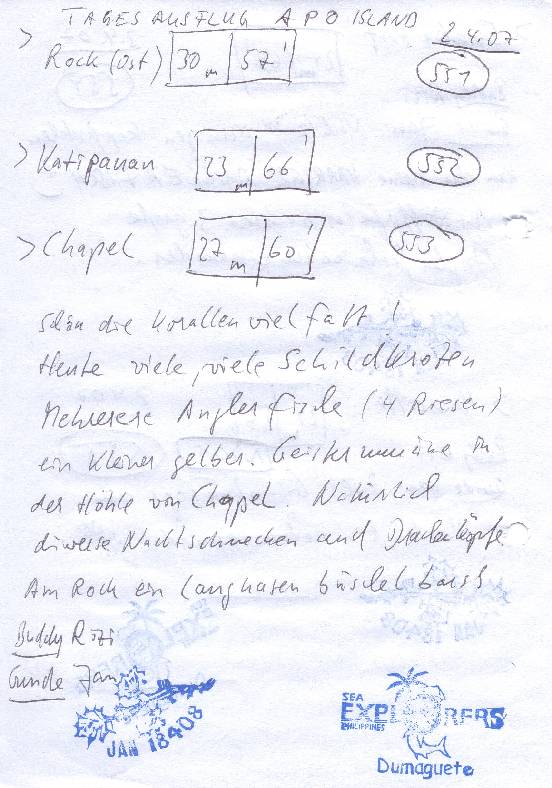 TAGESAUSFLUG APO ISLAND
2.4.07
> Rock (Ost) 30 m 57' 551
> Katipanan 23 m 66' 552
> Chapel 27 m 60' 553
schön die Korallenvielfalt!
Heute viele, viele Schildkröten
Mehrere Anglerfische (4 Riesen)
ein kleiner gelber. Geistermuräne in
der Höhle von Chapel. Natürlich
diverse Nachtschnecken und Drachenköpfe
Am Rock ein Langnasenbüschelbarsch
Buddy Rizi
Guide Jan
JAN 18408
SEA
EXPLORERS
PHILIPPINES
Dumaguete